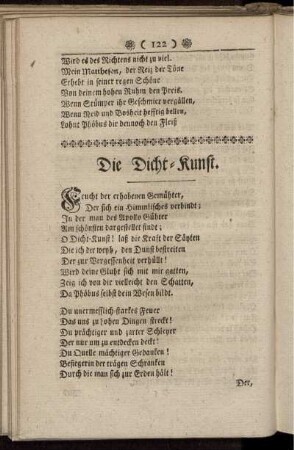 ( 122 )
Wird es des Richtens nicht zu viel.
Mein Matthesen, der Reiz der Töne
Erhebt in seiner regen Schöne
Von deinem hohen Ruhm den Preis.
Wenn Stümper ihr Geschmier vergüllen,
Wenn Neid und Bosheit hefftig bellen,
Lohnt Phöbus dir dennoch den Fleiß
Die Dicht-Kunst.
Frucht der erhobenen Gemühter,
Der sich ein Himmlisches verbindt;
In der man des Apollo Gühter
Am schönsten dargestellet findt;
O Dicht-Kunst! laß die Kraft der Säyten
Die ich der weyh, den Dunst bestreiten
Der zur Vergessenheit verhüllt!
Wird deine Gluht sich mit mir gatten,
Zeig ich von dir vielleicht den Schatten,
Da Phöbus selbst dein Wesen bildt.
Du unermesslich-starkes Feuer
Das uns zu hohen Dingen streckt!
Du prächtiger und zarter Schleyer
Der nur um zu entdecken deckt!
Du Quelle mächtiger Gedanken!
Besitzerin der trägen Schranken
Durch die man sich zur Erden hält!
Der,